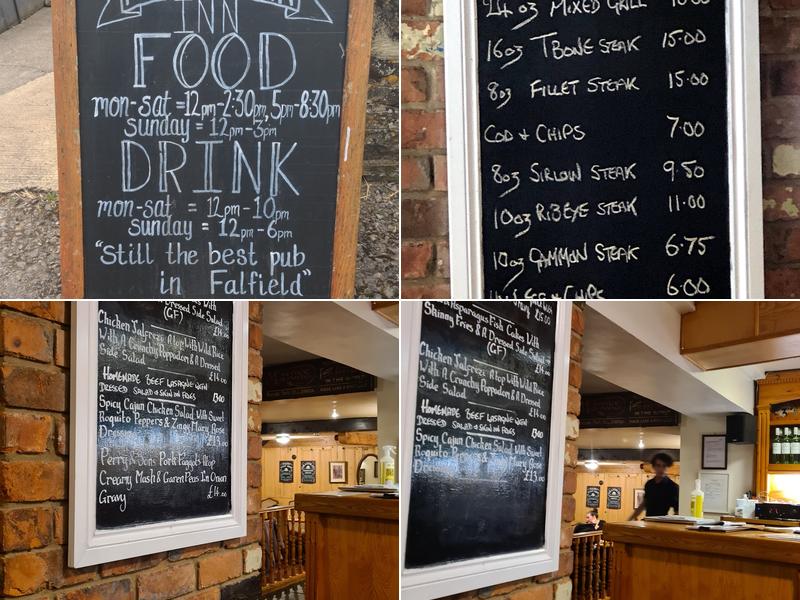 INN
FOOD
mon-sat =12pm-2:30pm, 5pm-8:30pm
sunday = 12pm-3pm
DRINK
mon-sat = 12pm-10pm
sunday = 12pm-6pm
"Still the best pub
in Falfield"
24oz MIXED GRILL
16oz T BONE STEAK 15.00
8oz FILLET STEAK 15.00
COD & CHIPS 7.00
8oz SIRLOIN STEAK 9.50
10oz RIBEYE STEAK 11.00
10oz GAMMON STEAK 6.75
& CHIPS 6.00
Dressed Side Salad
(GF) £16.00
Chicken Jalfreze Atop With Wild Rice
With A Crunchy Poppodom & A Dressed
Side Salad £14.00
HOMEMADE BEEF LASAGNE WITH
DRESSED SALAD & SKIN ON FRIES 13.00
Spicy Cajun Chicken Salad With Sweet
Roquito Peppers & Zingy Mary Rose
Dressing £13.00
Perry & Sons Pork Faggots Atop
Creamy Mash & Garen Peas In Onion
Gravy £14.00
Asparagus Fish Cakes With
Skinny Fries & A Dressed Side Salad
(GF)
Chicken Jalfreze Atop With Wild Rice
With A Crunchy Poppodom & A Dressed
Side Salad £14.00
HOMEMADE BEEF LASAGNE WITH
DRESSED SALAD & SKIN ON FRIES 13.00
Spicy Cajun Chicken Salad With Sweet
Roquito Peppers & Zingy Mary Rose
Dressing £13.00